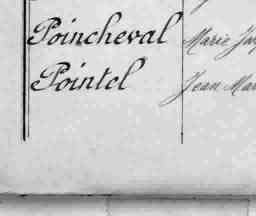 Poincheval Marie
Pointel Jean